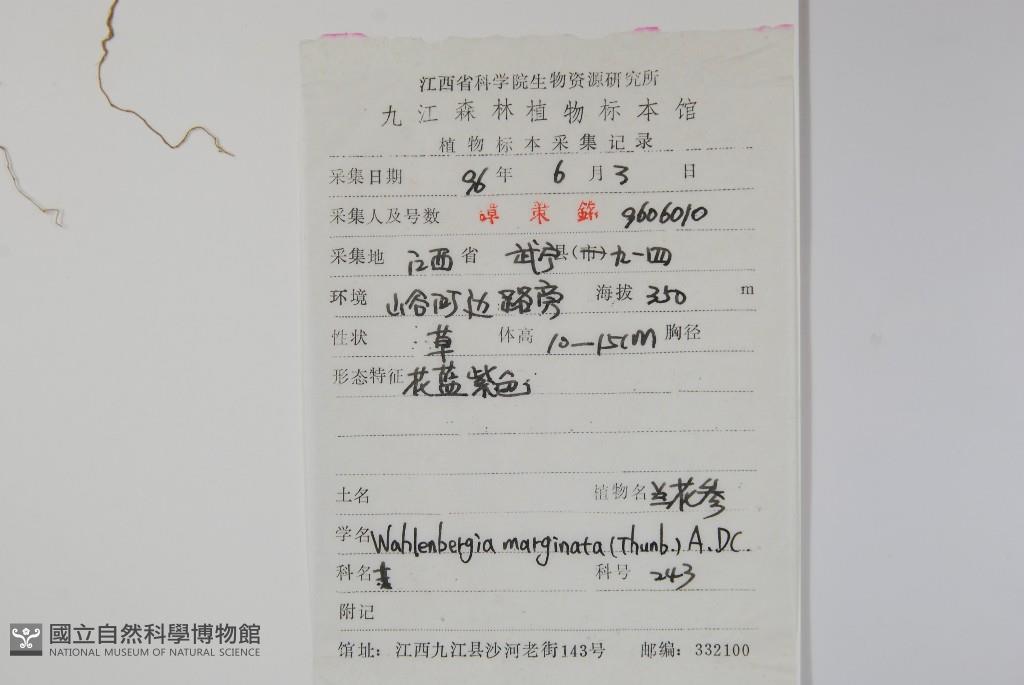 江西省科学院生物资源研究所
九江森林植物标本馆
植物标本采集记录
采集日期 96年 6月3 日
采集人及号数 9606010
采集地 江西省 武宁县(市)九一四
环境 山谷阿边路旁 海拔 350 m
性状 草 体高 10—15CM 胸径
形态特征 花蓝紫色
土名 植物名 兰花参
学名 Wahlenbergia marginata (Thunb.) A.DC.
科名 科号 243
附记
馆址：江西九江县沙河老街143号 邮编：332100
國立自然科學博物館
NATIONAL MUSEUM OF NATURAL SCIENCE